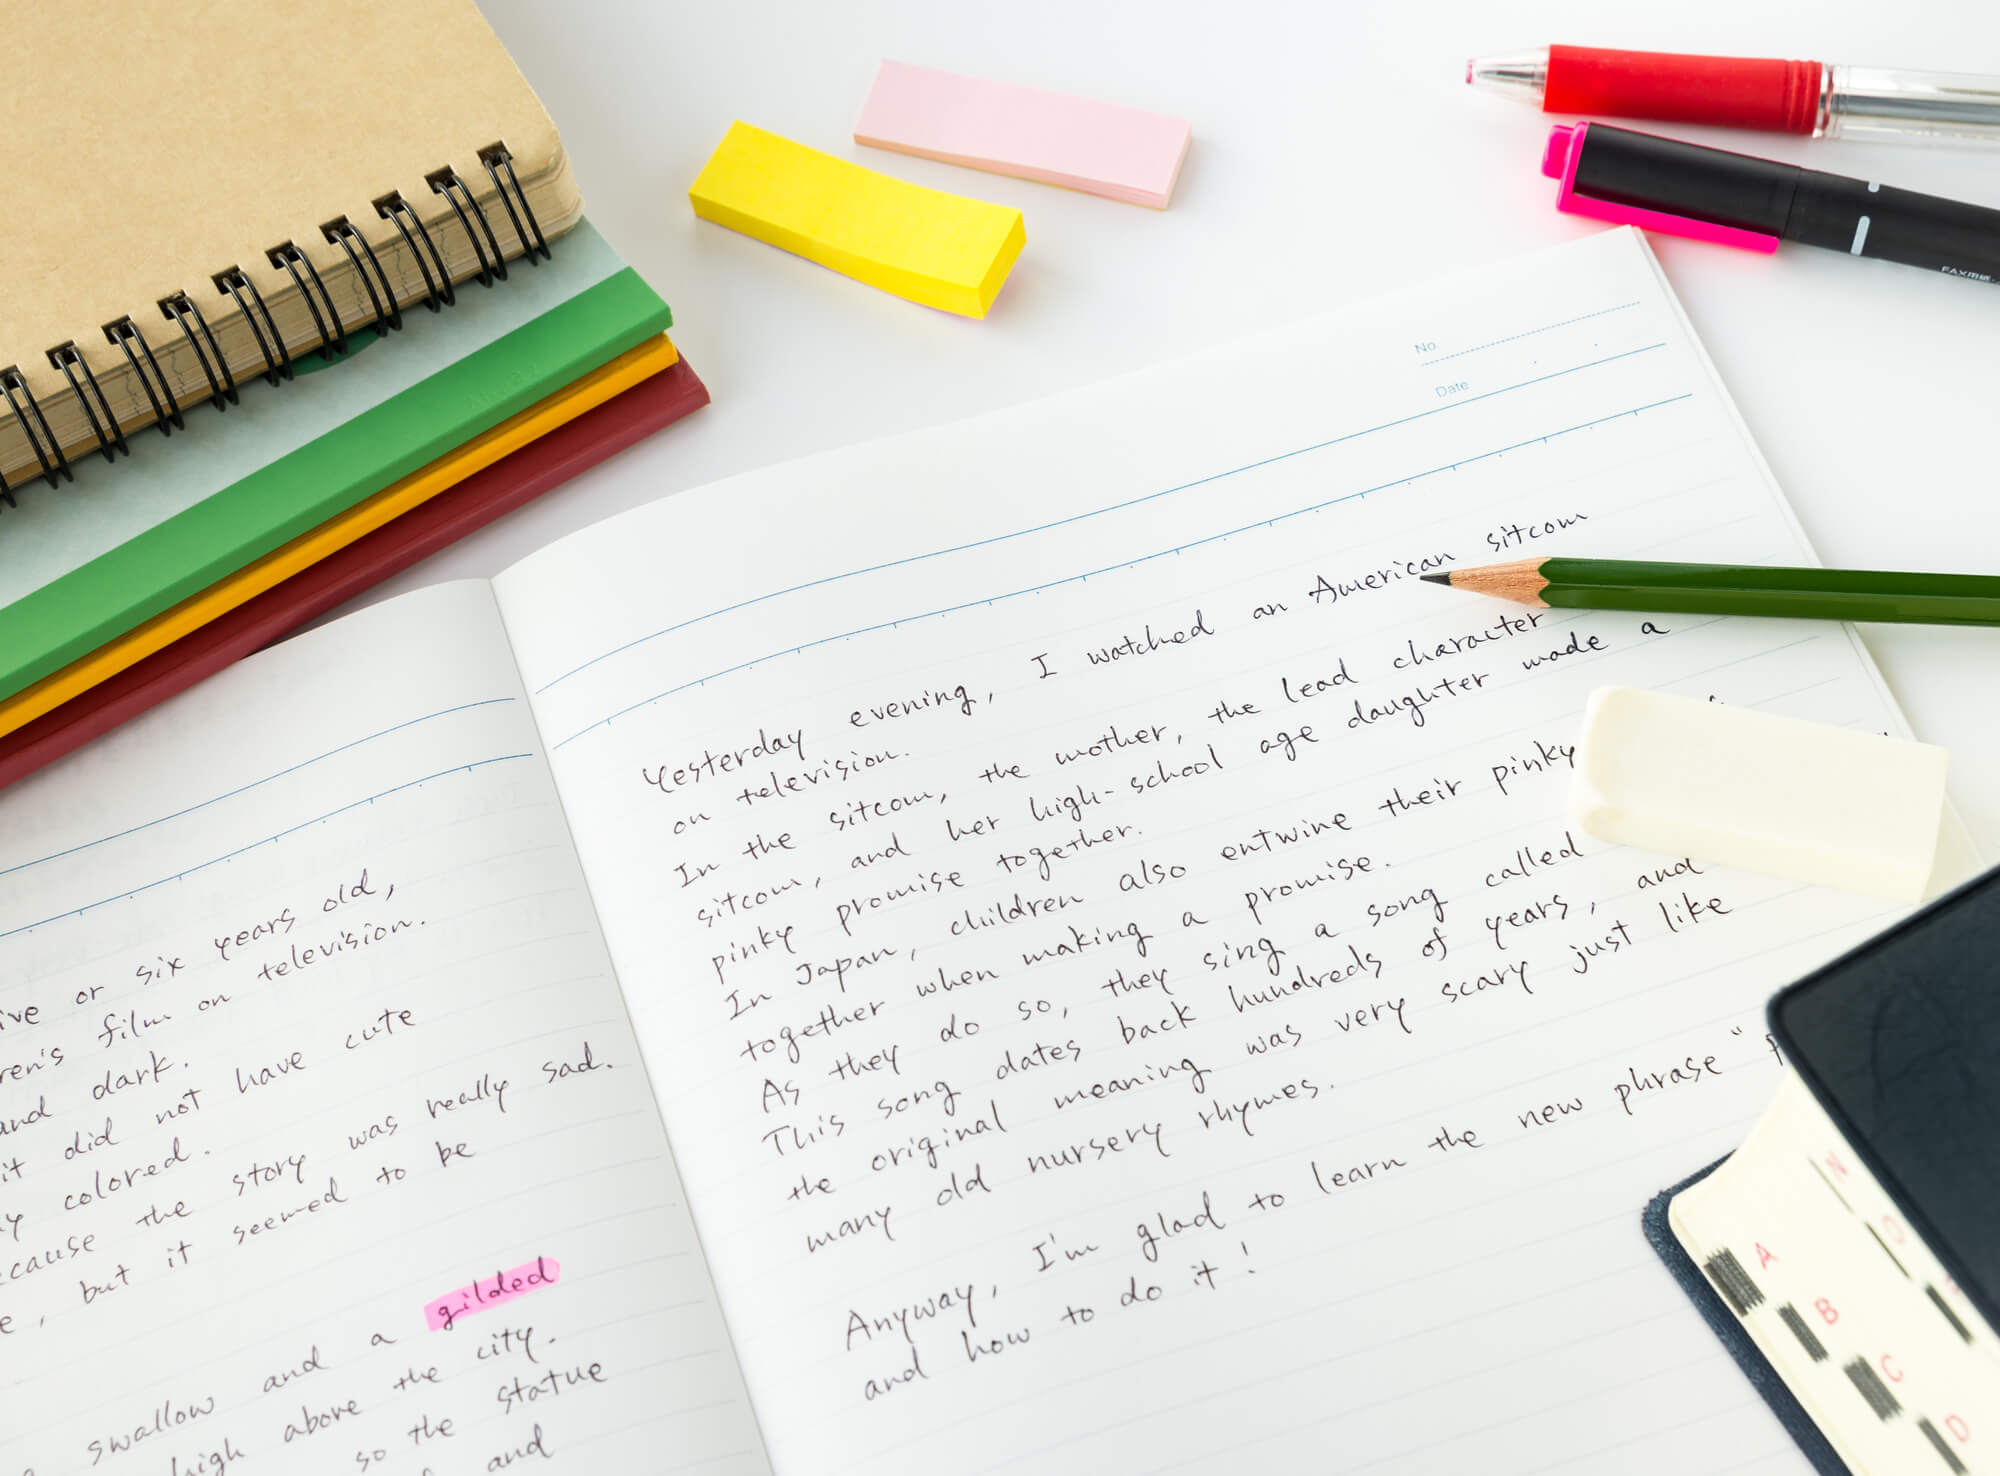 ive or six years old,
ren's film on television.
and dark.
it did not have cute
y colored.
ecause the story was really sad.
e, but it seemed to be
swallow and a gilded
high above the city.
so the statue
and
No.
Date
Yesterday evening, I watched an American sitcom
on television.
In the sitcom, the mother, the lead character
sitcom, and her high-school age daughter made a
pinky promise together.
In Japan, children also entwine their pinky
together when making a promise.
As they do so, they sing a song called
This song dates back hundreds of years, and
the original meaning was very scary just like
many old nursery rhymes.
Anyway, I'm glad to learn the new phrase "P
and how to do it!
A
B
C
D
N
O